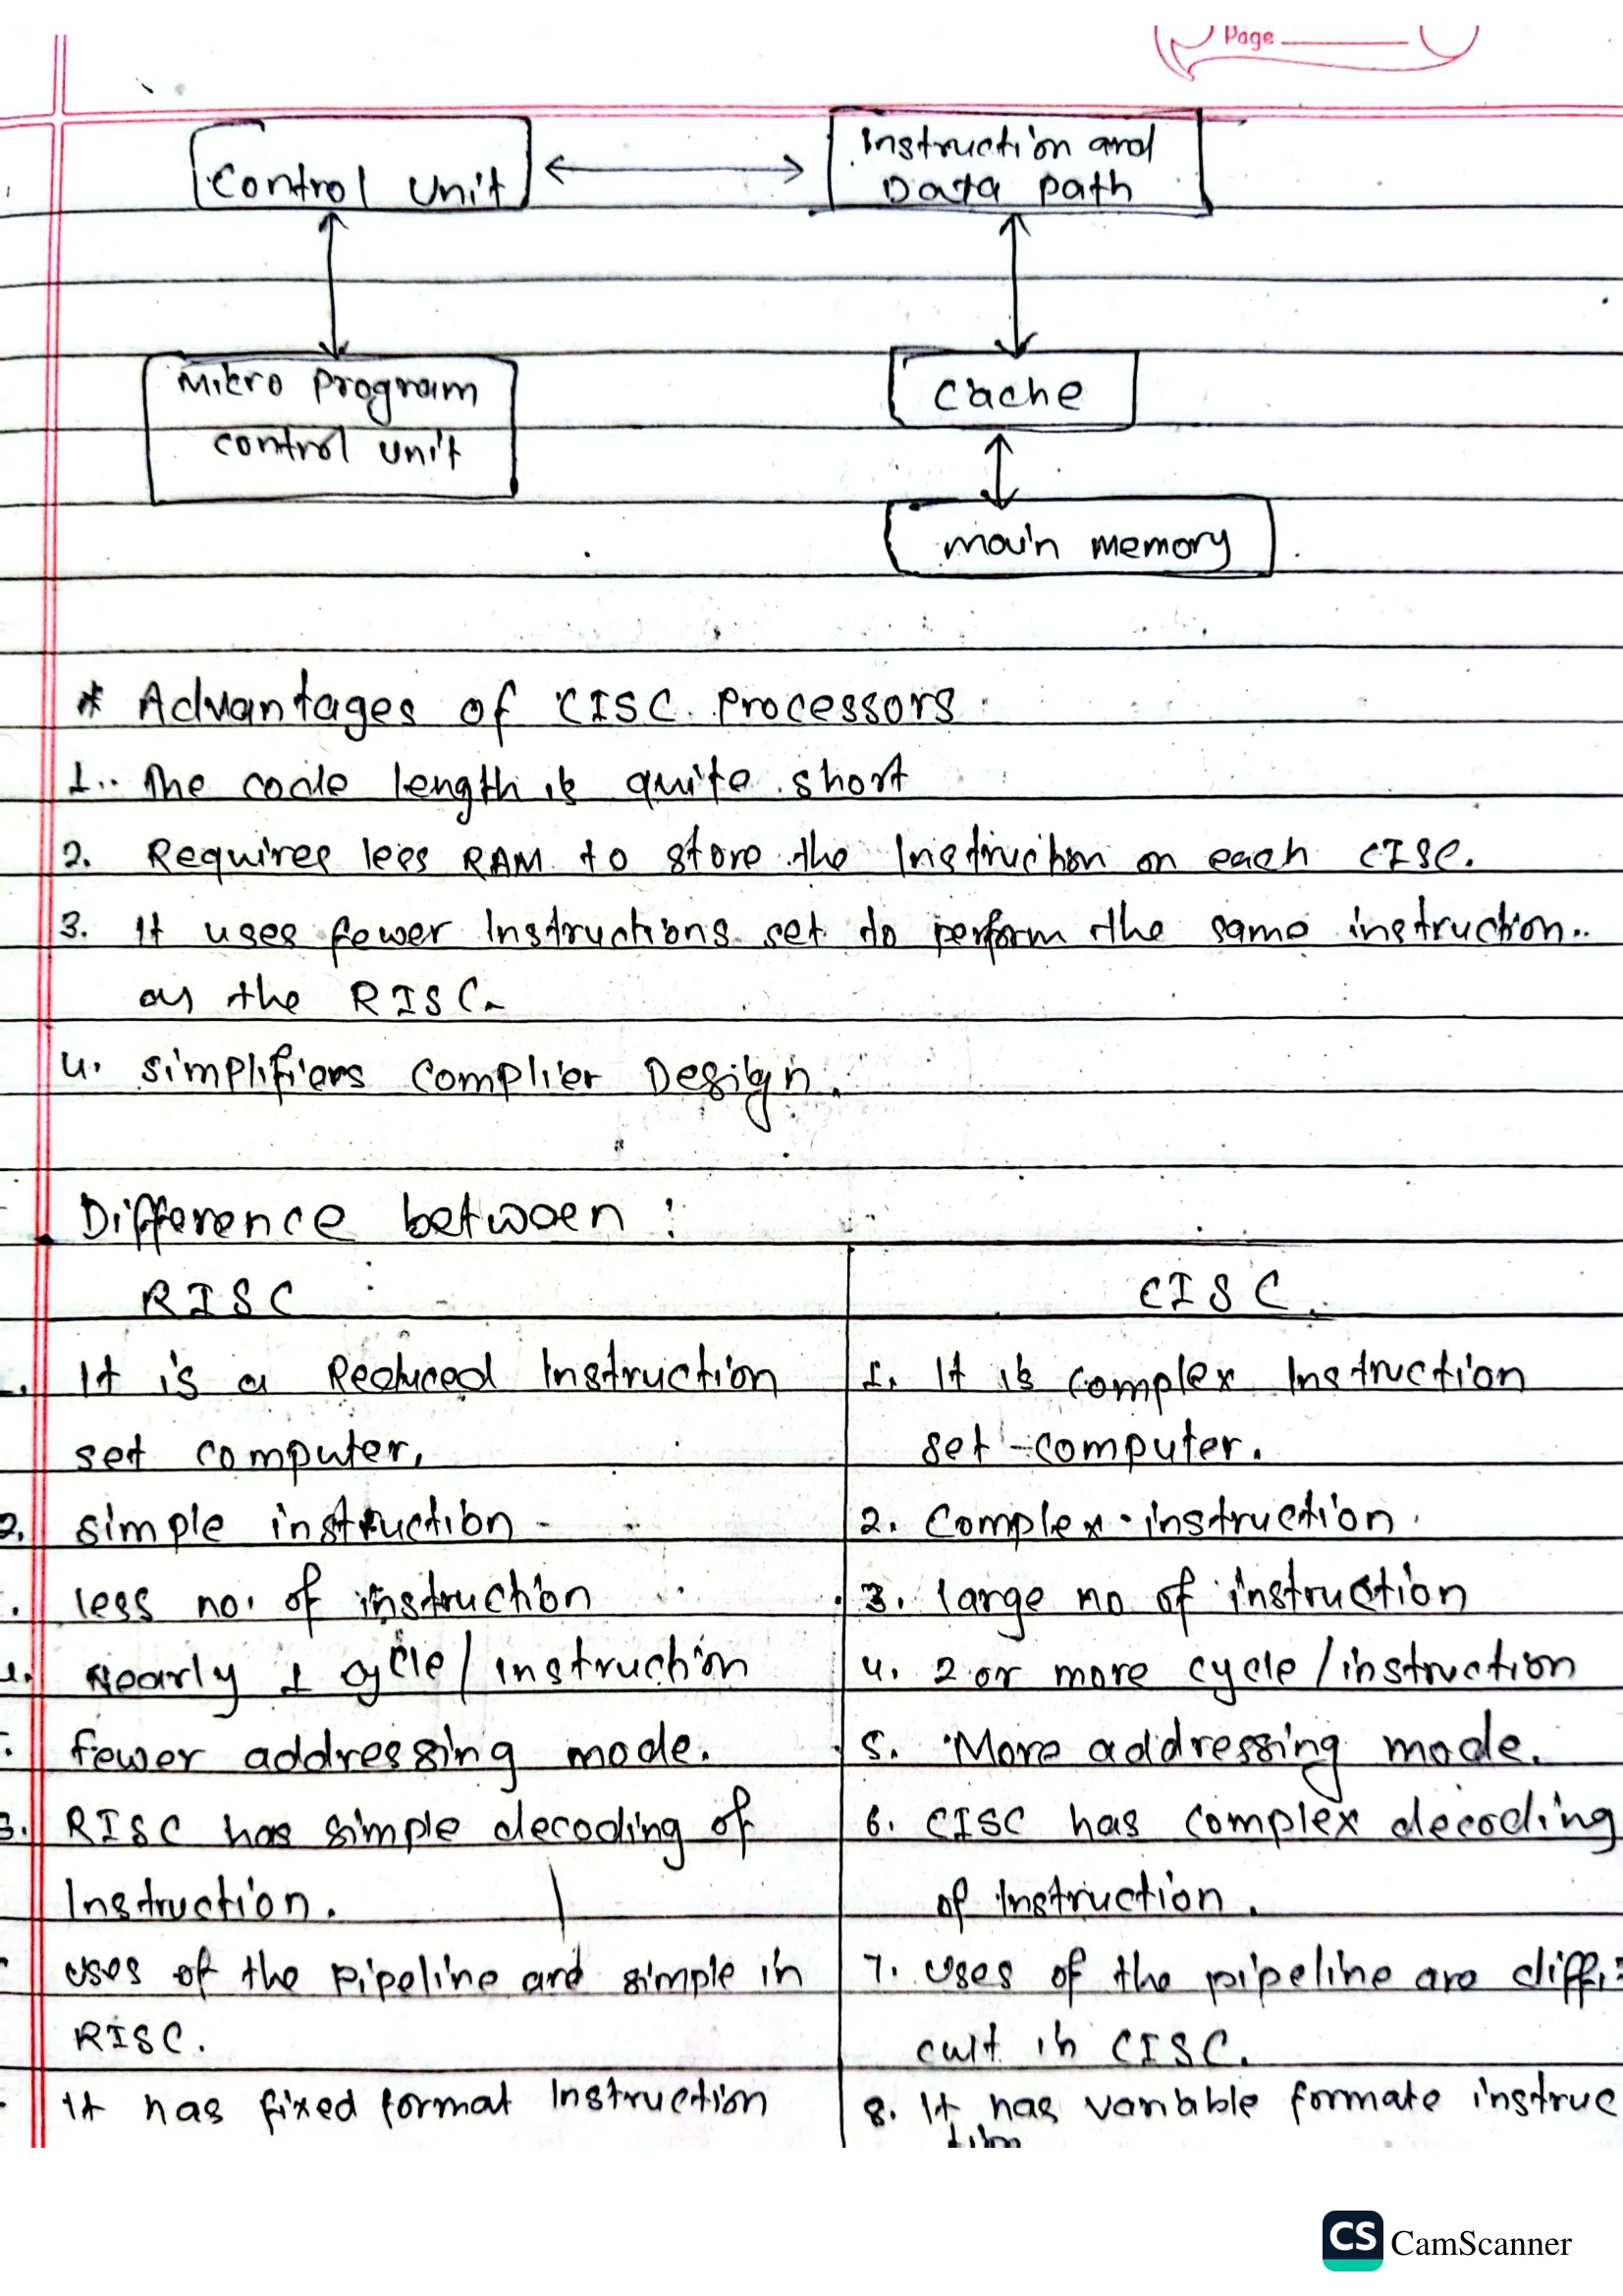 Page
Control Unit
Instruction and
Data Path
Micro Program
control unit
Cache
main memory
* Advantages of CISC Processors
1. The code length is quite short
2. Requires less RAM to store the Instruction on each CISC.
3. It uses fewer Instructions set to perform the same instruction
as the RISC.
4. simplifiers Complier Design.
Difference between :
RISC
CISC
1. It is a Reduced Instruction
set computer.
1. It is complex Instruction
set computer.
2. simple instruction
2. Complex instruction.
. less no. of instruction
3. large no of instruction
4. Nearly 1 cycle/instruction
4. 2 or more cycle/instruction
. fewer addressing mode.
5. More addressing mode.
6. RISC has simple decoding of
Instruction.
6. CISC has complex decoding
of Instruction.
uses of the pipeline are simple in
RISC.
7. uses of the pipeline are diffi-
cult in CISC.
It has fixed format Instruction
8. It has variable formate instruc
tion
CS CamScanner